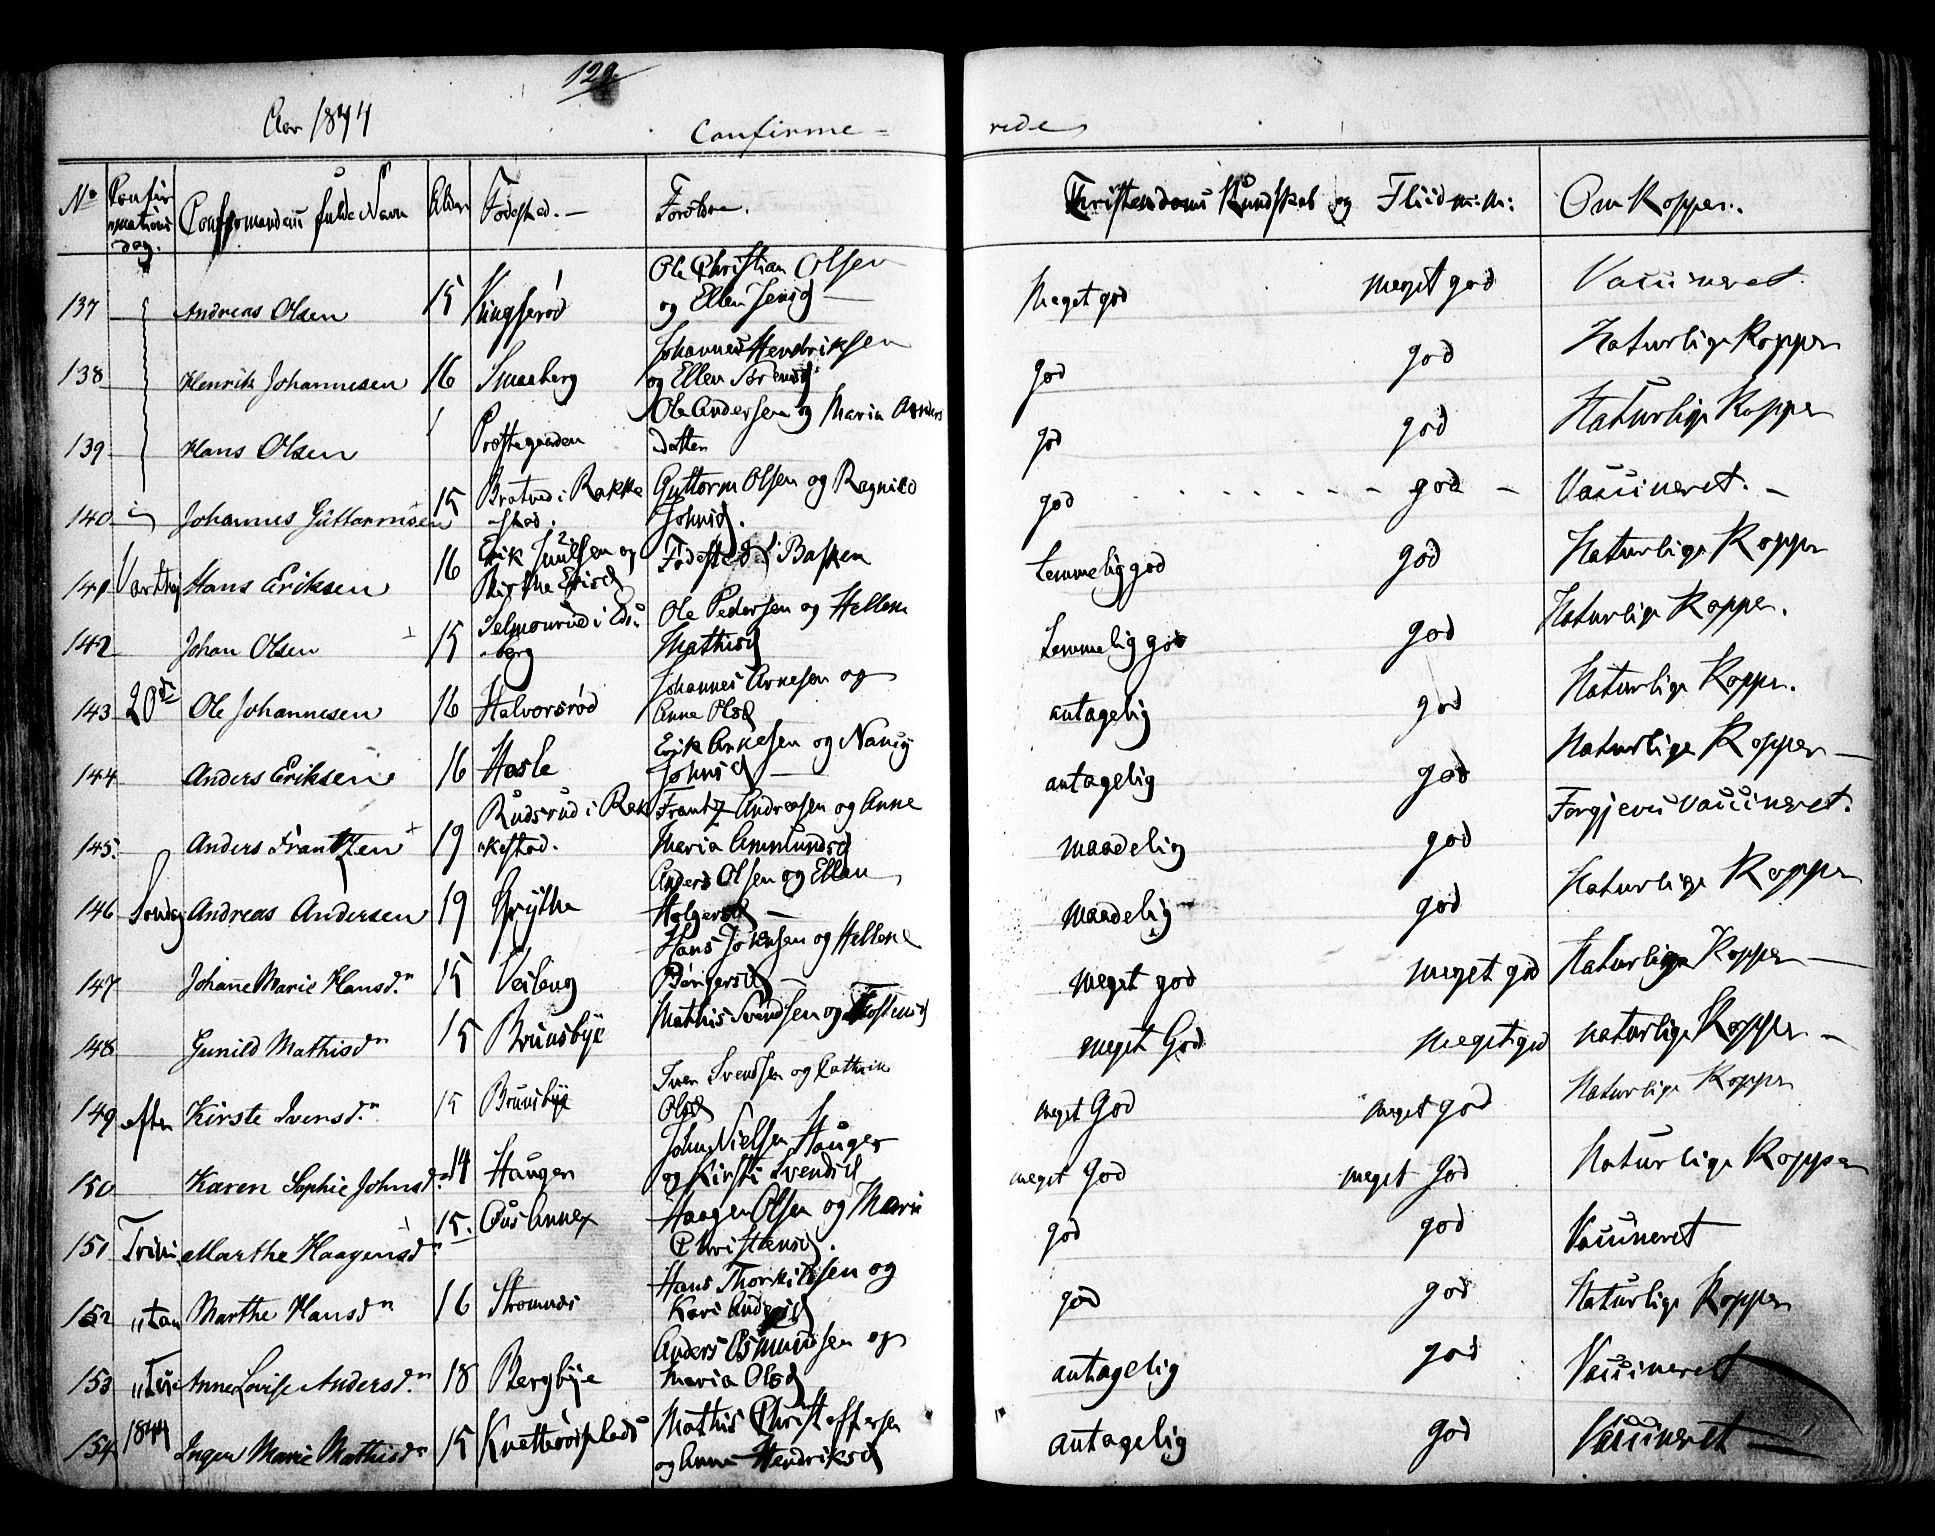 129.
Aar 1844
Confirme = rede
No Confirmations dag. Confirmandens fulde Navn Alder Fødested. Forældre. Christendoms Kundskab og Fliid m: m: Om Kopper.
137 Andreas Olsen 15 Kingserød Ole Christian Olsen
og Ellen Jensd Meget god meget god Vaccineret.
138 Henrik Johannesen 16 Smaaberg Johannes Hendriksen
og Ellen Sørensd god god Naturlige Kopper
139 Hans Olsen Præstegaarden Ole Andersen og Maria Anders
datter god god Naturlige Kopper
140 i Johannes Guttormsen 15 Bratved i Rakke
-stad. Guttorm Olsen og Ragnild
Johnsd. god god Vaccineret.
141 Varteig Hans Eriksen 16 Erik og
Birthe Ericsd Fødested i Basken temmelig god god Naturlige Kopper
142 Johan Olsen 15 Selmerrud i Eds
-berg Ole Pedersen og Hellene
Mathisd temmelig god god Naturlige Kopper.
143 20de Ole Johannesen 16 Halvorsrød Johannes Arnesen og
Anne Olsd antagelig god Naturlige Kopper.
144 Anders Eriksen 16 Hasle Erik Arnesen og Nancy
Johnsd antagelig god Naturlige Kopper
145. Anders Frantzen 19 Rudsrud i Rak
-kestad. Frantz Andreasen og Anne
Maria Ammundsd maadelig god Forgjeves vaccineret.
146 Søndag Andreas Andersen 19 Grythe Anders Olsen og Ellen
Holgersd maadelig god Naturlige Kopper
147 Johanne Marie Hansd.n 15 Veileng Hans Jørensen og Hellene
Børgersd meget god meget god Naturlige Kopper
148 Gunild Mathisd.n 15 Brunsbye Mathis Svendsen og Tostensd meget God Meget god naturlige Kopper
149 efter Kirste Ivensd.n 15 Brunsbye Iven Svendsen og Cathrin
Olsd meget God meget god Naturlige Kopper
150 Karen Sophie Johnsd. 14 Haugen John Nielsen Hauger
og Kirsti Svendsd meget God meget God Naturlige Kopper
151 Trini Marthe Haagensd.n 15. Øus Annex Haagen Olsen og Marie
Christensd. god god Vaccineret
152 "tan Marthe Hansd.n 16 Strømnes Hans Thorkildsen og
Kari Andersd god god Naturlige Kopper
153 Anne Lovise Andersd.n 18 Bergbye Anders Osmundsen og
Maria Olsd antagelig god Vaccineret
154 1844 Inger Marie Mathisd.n 15 Knatterødplads Mathis Christoffersen
og Anne Hendriksd antagelig god Vaccineret